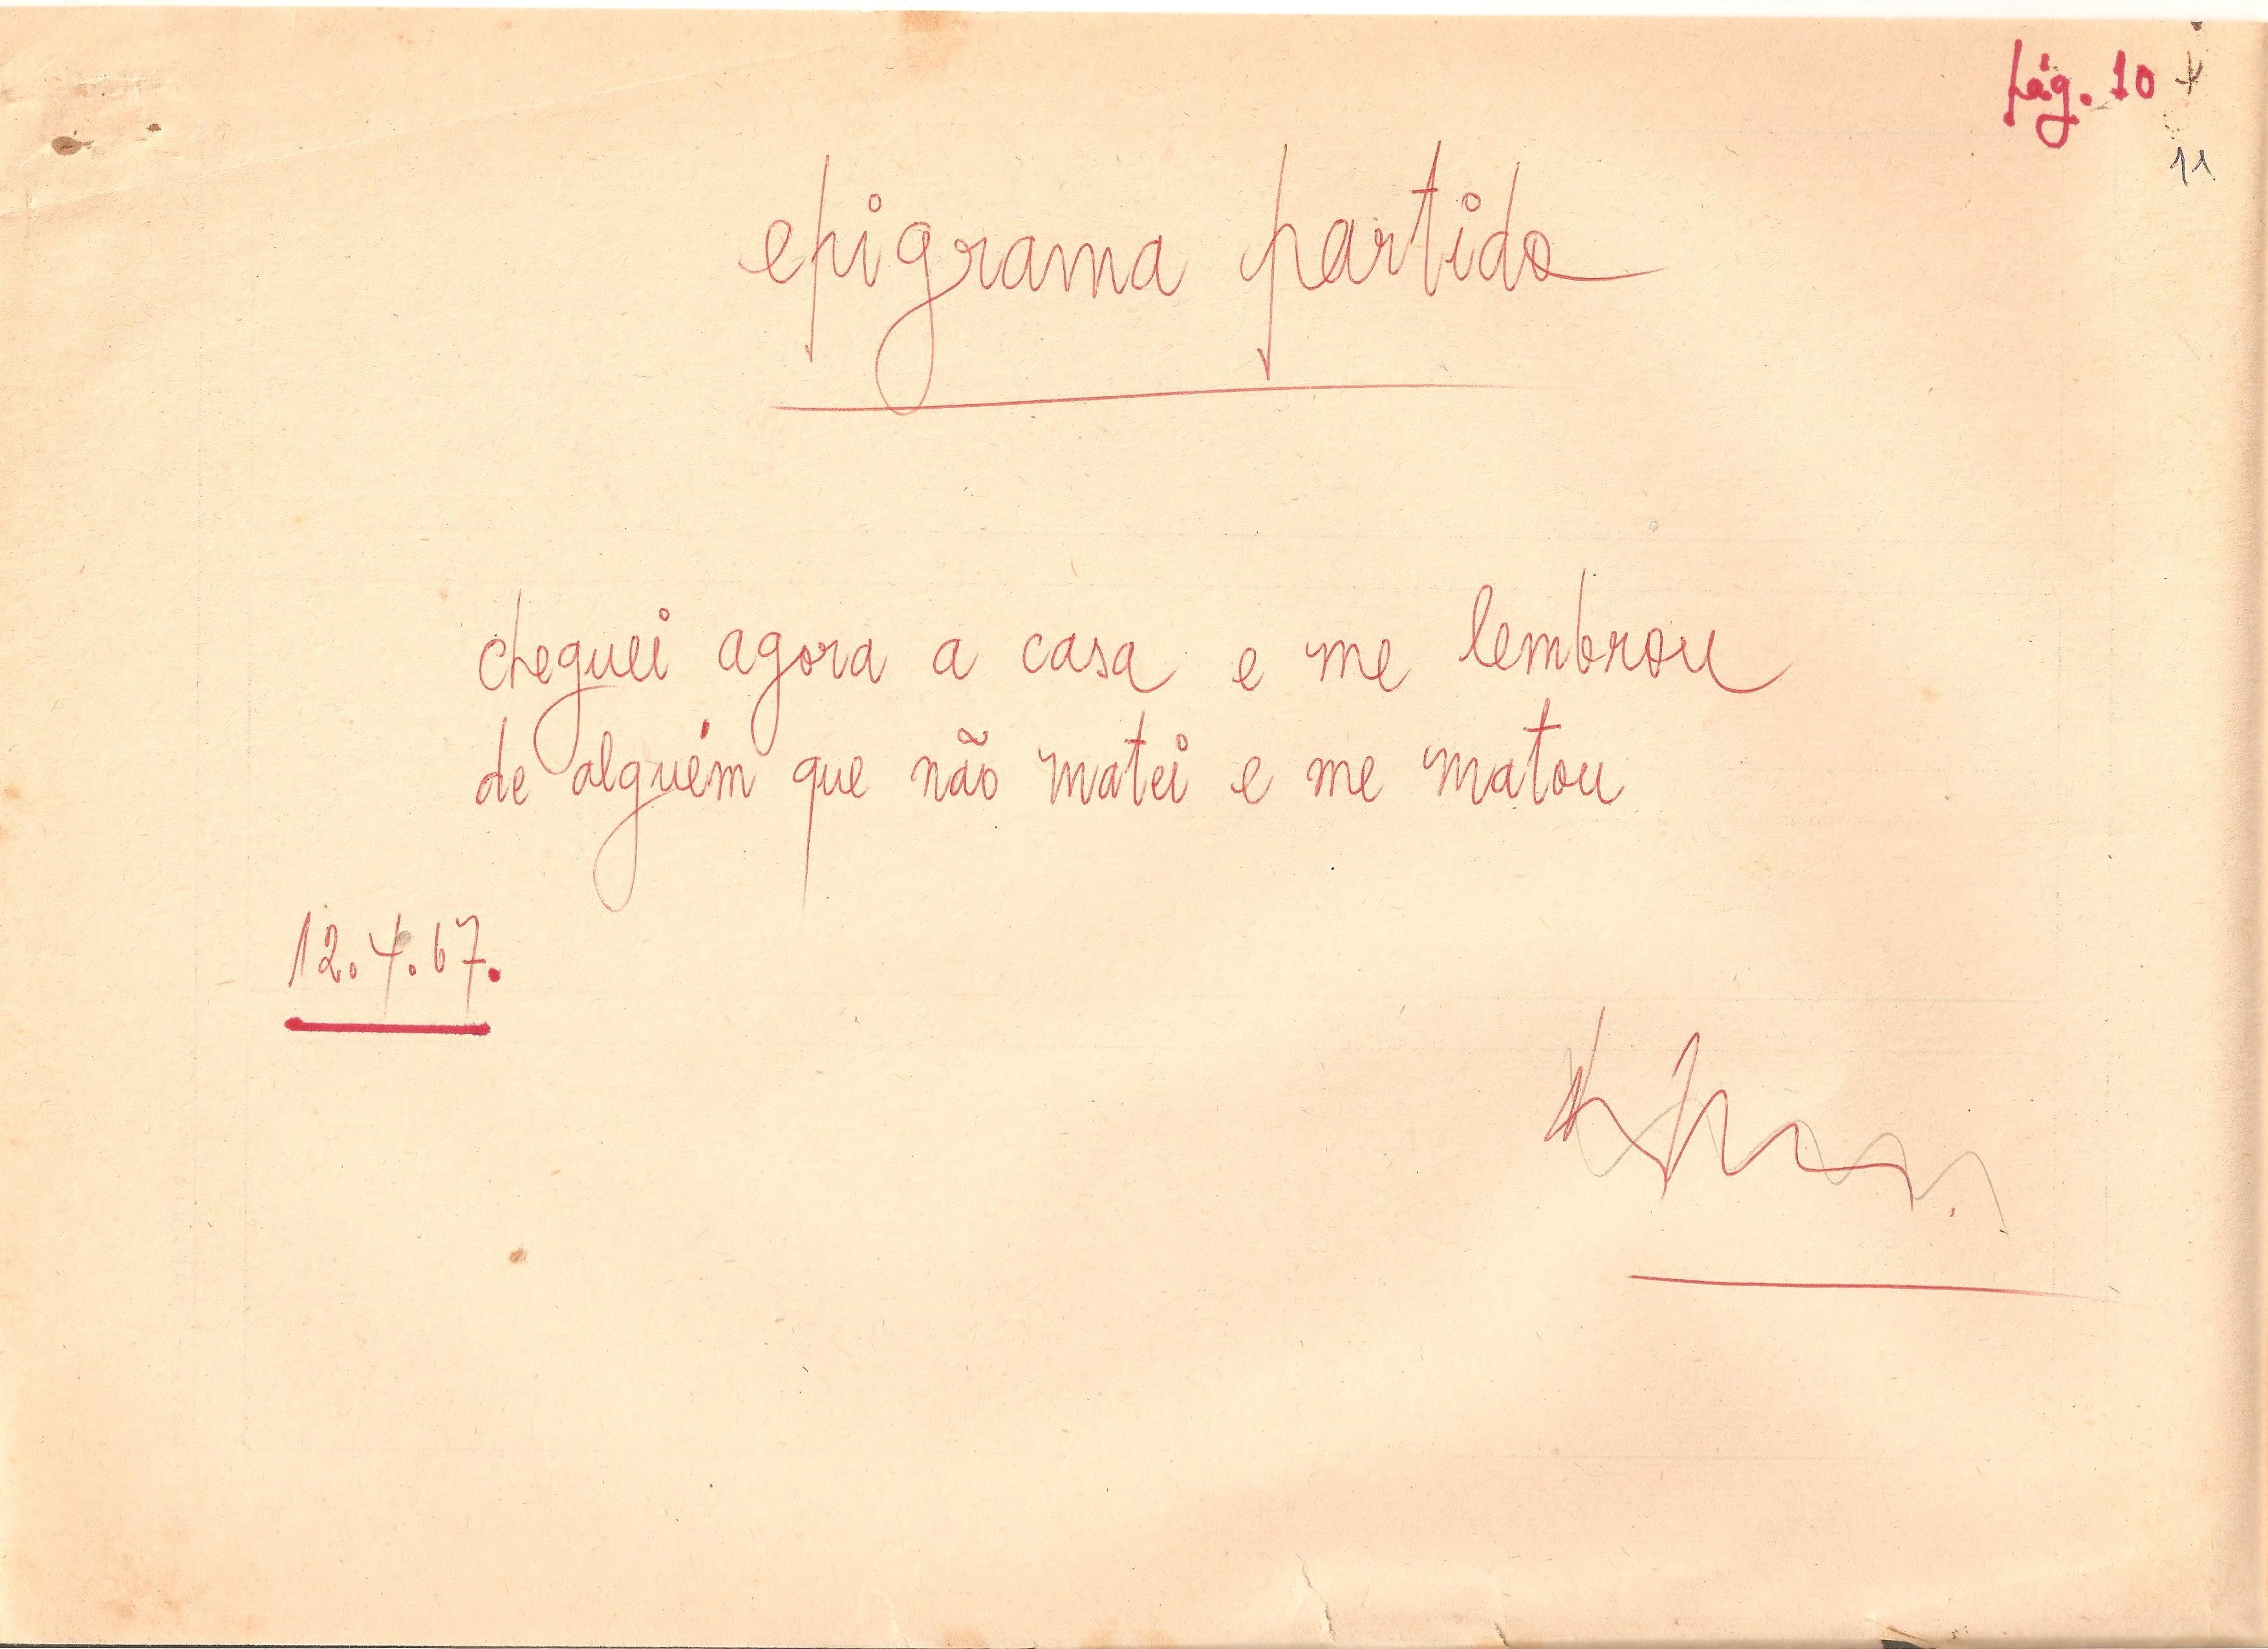 pág. 10
11
epigrama partido
cheguei agora a casa e me lembrou
de alguém que não matei e me matou
12.4.67.